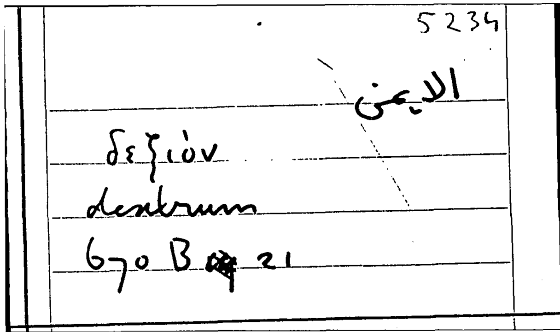 5234
الايمن
δεξιόν
dextrum
670 B 21